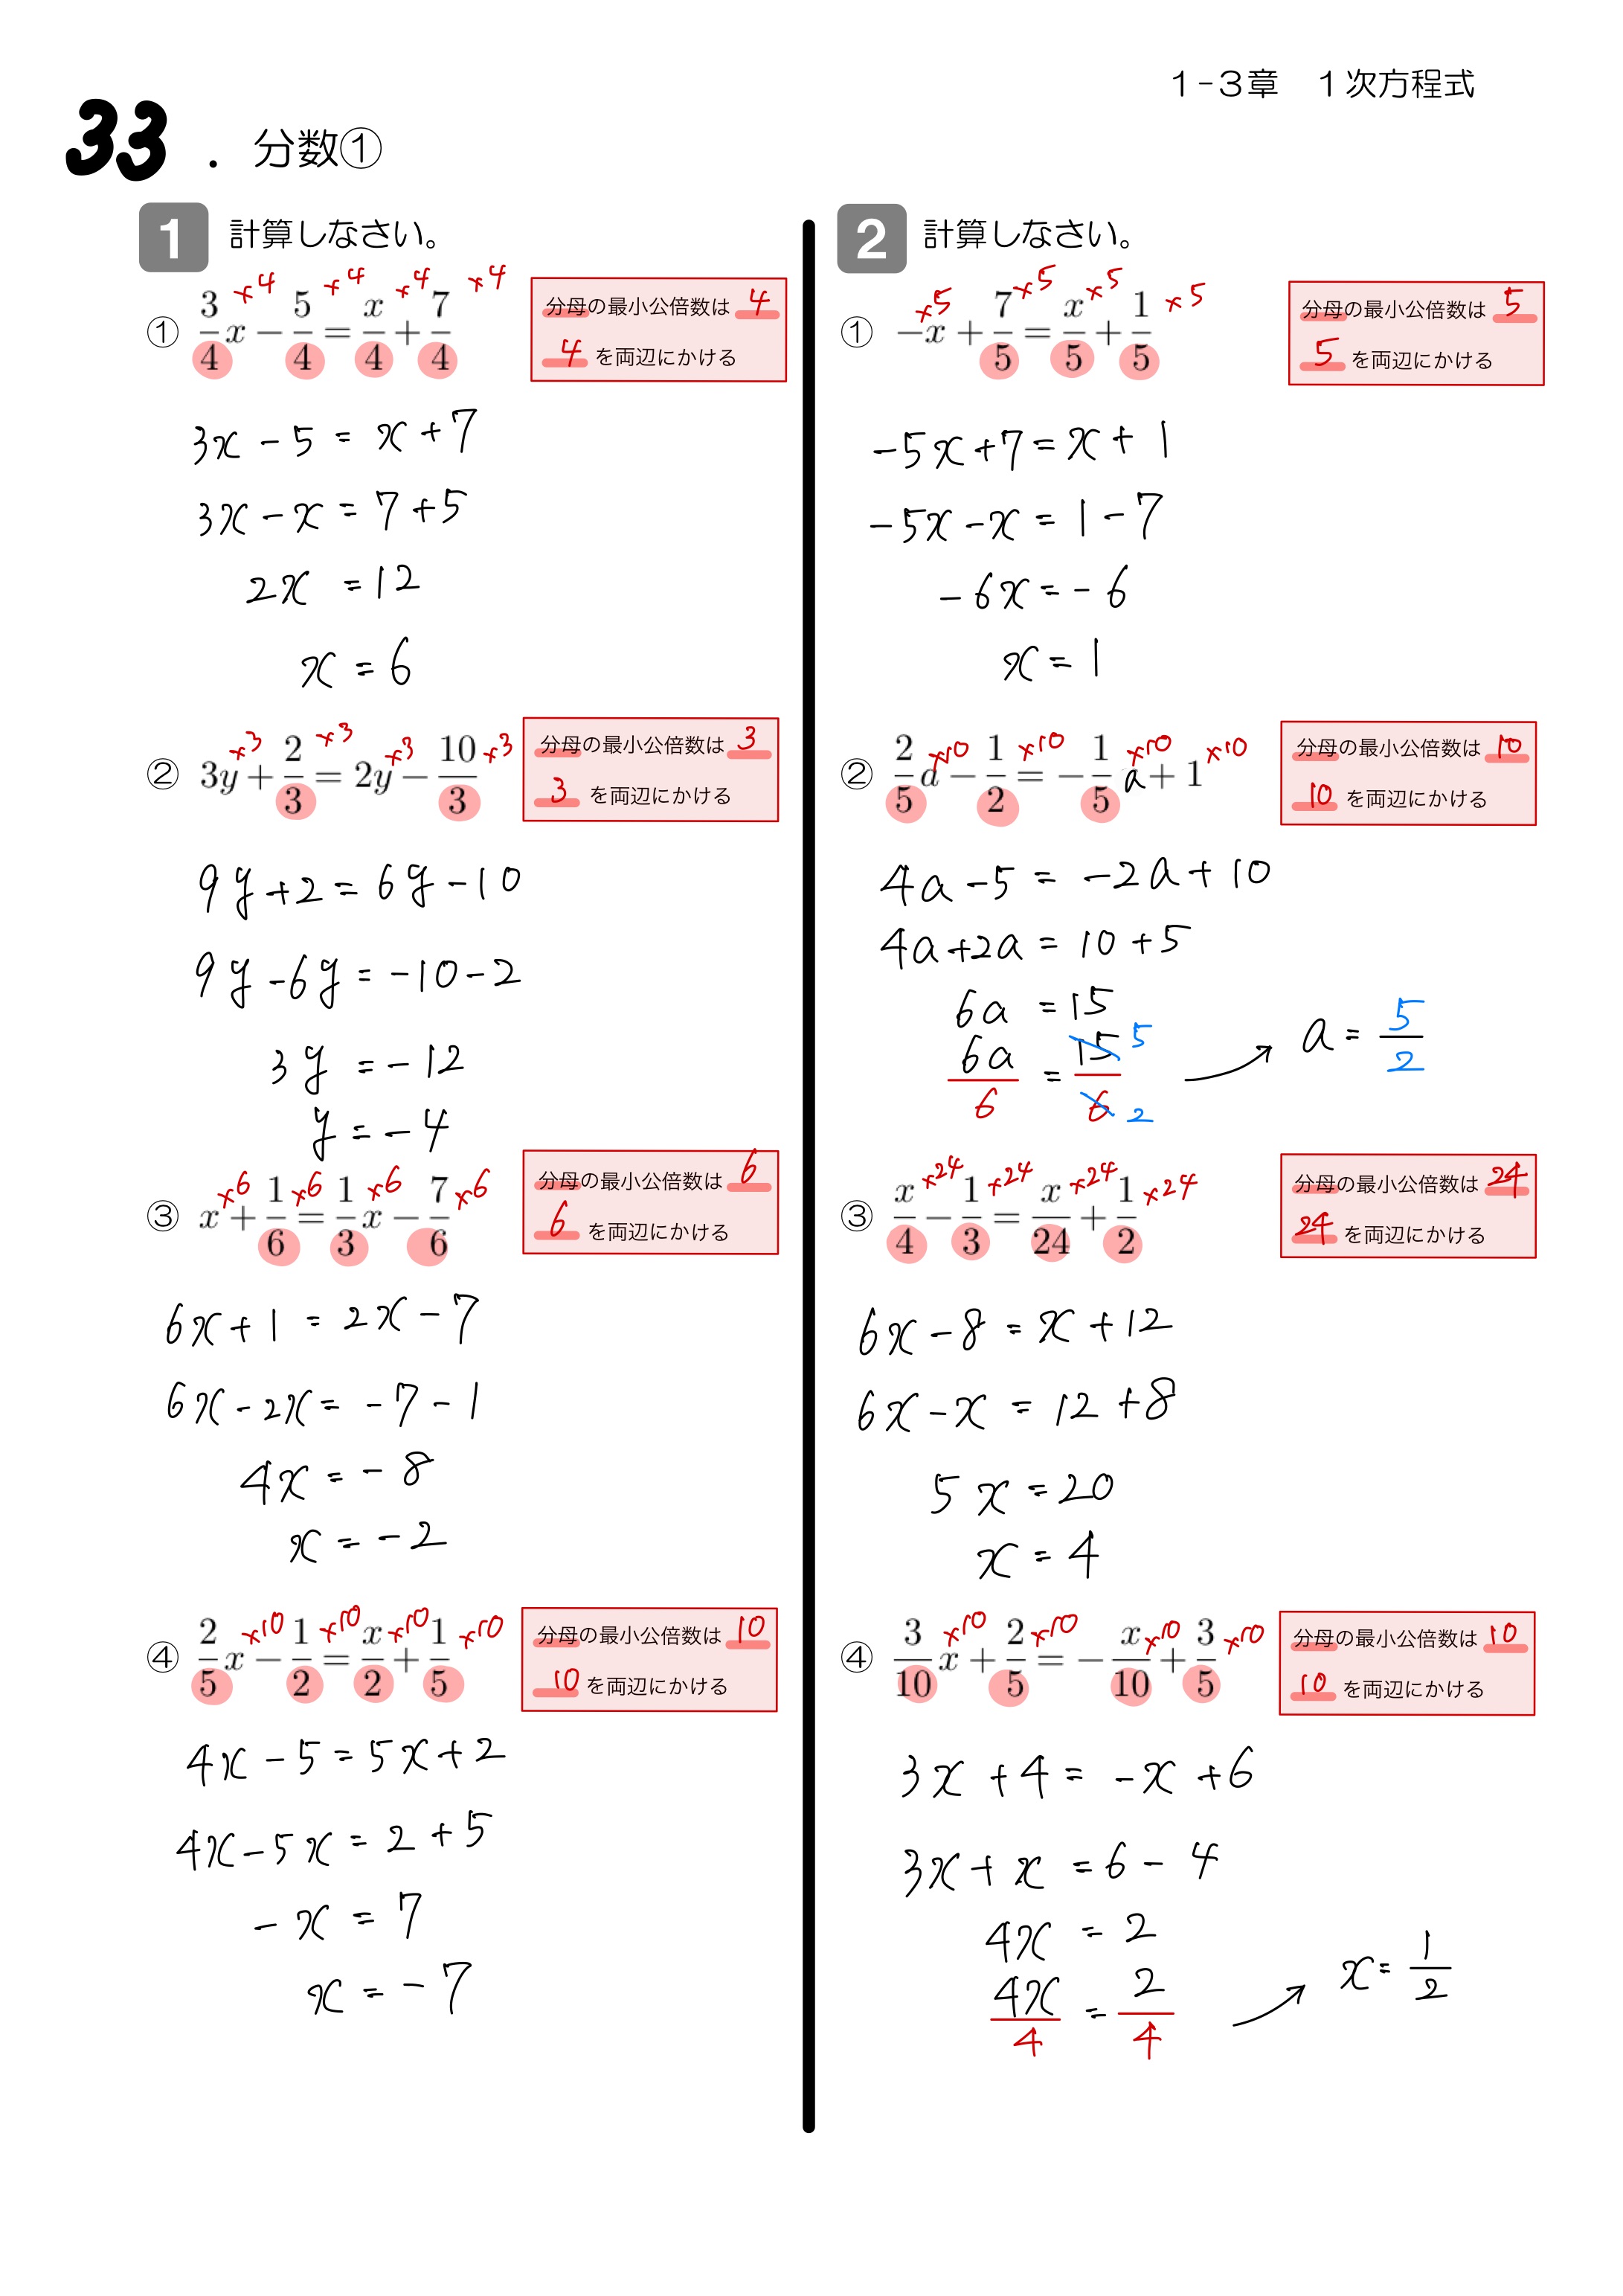 1-3章 1次方程式
33 . 分数①
1 計算しなさい。
×4 ×4 ×4 ×4
① 3/4 x − 5/4 = x/4 + 7/4
分母の最小公倍数は 4
4 を両辺にかける
3x − 5 = x + 7
3x − x = 7 + 5
2x = 12
x = 6
×3 ×3 ×3 ×3
② 3y + 2/3 = 2y − 10/3
分母の最小公倍数は 3
3 を両辺にかける
9y + 2 = 6y − 10
9y − 6y = −10 − 2
3y = −12
y = −4
×6 ×6 ×6 ×6
③ x + 1/6 = 1/3 x − 7/6
分母の最小公倍数は 6
6 を両辺にかける
6x + 1 = 2x − 7
6x − 2x = −7 − 1
4x = −8
x = −2
×10 ×10 ×10 ×10
④ 2/5 x − 1/2 = x/2 + 1/5
分母の最小公倍数は 10
10 を両辺にかける
4x − 5 = 5x + 2
4x − 5x = 2 + 5
−x = 7
x = −7
2 計算しなさい。
×5 ×5 ×5 ×5
① −x + 7/5 = x/5 + 1/5
分母の最小公倍数は 5
5 を両辺にかける
−5x + 7 = x + 1
−5x − x = 1 − 7
−6x = −6
x = 1
×10 ×10 ×10 ×10
② 2/5 a − 1/2 = −1/5 a + 1
分母の最小公倍数は 10
10 を両辺にかける
4a − 5 = −2a + 10
4a + 2a = 10 + 5
6a = 15
6a/6 = 15/6 5 2 → a = 5/2
×24 ×24 ×24 ×24
③ x/4 − 1/3 = x/24 + 1/2
分母の最小公倍数は 24
24 を両辺にかける
6x − 8 = x + 12
6x − x = 12 + 8
5x = 20
x = 4
×10 ×10 ×10 ×10
④ 3/10 x + 2/5 = −x/10 + 3/5
分母の最小公倍数は 10
10 を両辺にかける
3x + 4 = −x + 6
3x + x = 6 − 4
4x = 2
4x/4 = 2/4 → x = 1/2